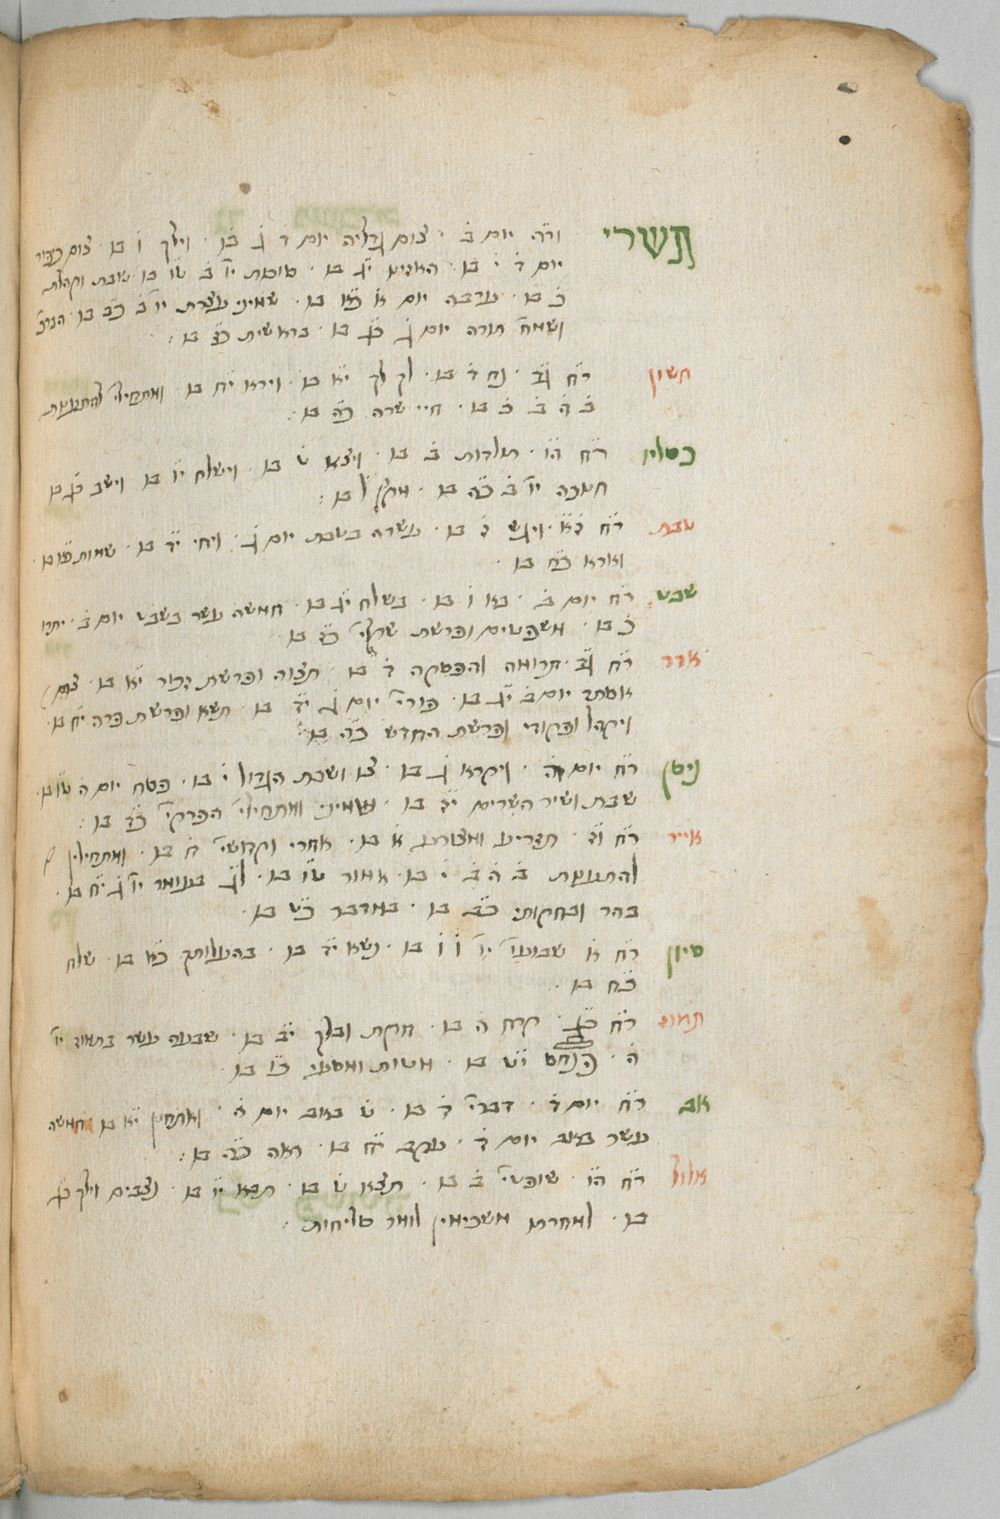 תשרי ור״ה יום ב׳ · צום גדליה יום ד׳ ג׳ בו · וילך ו׳ בו · צום כיפור
יום ד׳ י׳ בו · האזינו י״ג בו · סוכות יו׳ ב׳ ט״ו בו שבת וקהלת
כ׳ בו · ערבה יום א׳ כ״א בו · שמיני עצרת יו׳ ב׳ כ״ב בו
ושמח׳ תורה יום ג׳ כ״ג בו · בראשית כ״ה בו :
חשון ר״ח ג״ד · נח ד׳ בו · לך לך י״א בו · וירא י״ח בו · ומתחילי׳ להתענות
ב׳ ה׳ ב׳ כ׳ בו · חיי שרה כ״ה בו :
כסליו ר״ח ה״ו · תולדות ב׳ בו · ויצא ט׳ בו · וישלח י״ו בו וישב כ״ג בו
חנוכה יו׳ ב׳ כ״ה בו · מקץ ל׳ בו :
טבת ר״ח ז״א · ויגש ז׳ בו · עשרה בטבת יום ג׳ · ויחי י״ד בו · שמות
וארא כ״ח בו ·
שבט ר״ח יום ב׳ · בא ו׳ בו · בשלח י״ג בו · חמשה עשר בשבט יום ב׳ · יתרו
כ׳ בו · משפטים ופרשת שקלי׳ כ״ז בו ·
אדר ר״ח ג״ד · תרומה והפסקה ד׳ בו · תצוה ופרשת זכור י״א בו · צום
אסתר יום ב׳ י״ג בו · פורי׳ יום ג׳ י״ד בו · תשא ופרשת פרה י״ח בו ·
ויקהל ופקודי ופרשת החדש כ״ה בו :
ניסן ר״ח יום ה׳ · ויקרא ג׳ בו · צו ושבת הגדול י׳ בו · פסח יום ה׳ ט״ו בו ·
שבת ושיר השירים י״ז בו · שמיני ומתחילי׳ הפרקי׳ כ״ד בו :
אייר ר״ח ו״ז · תזריע ומצורע א׳ בו · אחרי וקדושי׳ ח׳ בו · ומתחילין
להתענות ב׳ ה׳ ב׳ י׳ בו · אמור ט״ו בו · ל״ג בעומר יו׳ ג׳ י״ח בו ·
בהר ובחקותי כ״ב בו · במדבר כ״ט בו ·
סיון ר״ח א׳ שבועו׳ יו׳ ו׳ ו׳ בו · נשא י״ד בו · בהעלותך כ״א בו · שלח
כ״ח בו ·
תמוז ר״ח ב״ג · קרח ה׳ בו · חקת ובלק י״ב בו · שבעה עשר בתמוז יו׳
ה׳ · פנחס י״ט בו · מטות ומסעי כ״ו בו ·
אב ר״ח יום ד׳ · דברי׳ ד׳ בו · ט׳ באב יום ה׳ · ואתחנן י״א בו חמשה
עשר באב יום ד׳ · עקב י״ח בו · ראה כ״ה בו :
אלול ר״ח ה״ו · שופטי׳ ב׳ בו · תצא ט׳ בו · תבא י״ו בו · נצבים וילך כ״ג
בו · למחרת משכימין לומר סליחות :